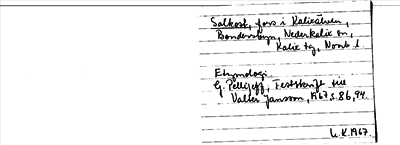 Salkost, fors i Kalixälven,
Bondersbyn, Nederkalix sn,
Kalix tg, Norrb l.
Etymologi.
G. Pellijeff, Festskrift till
Valter Jansson, 1967 s. 86, 94.
1967.